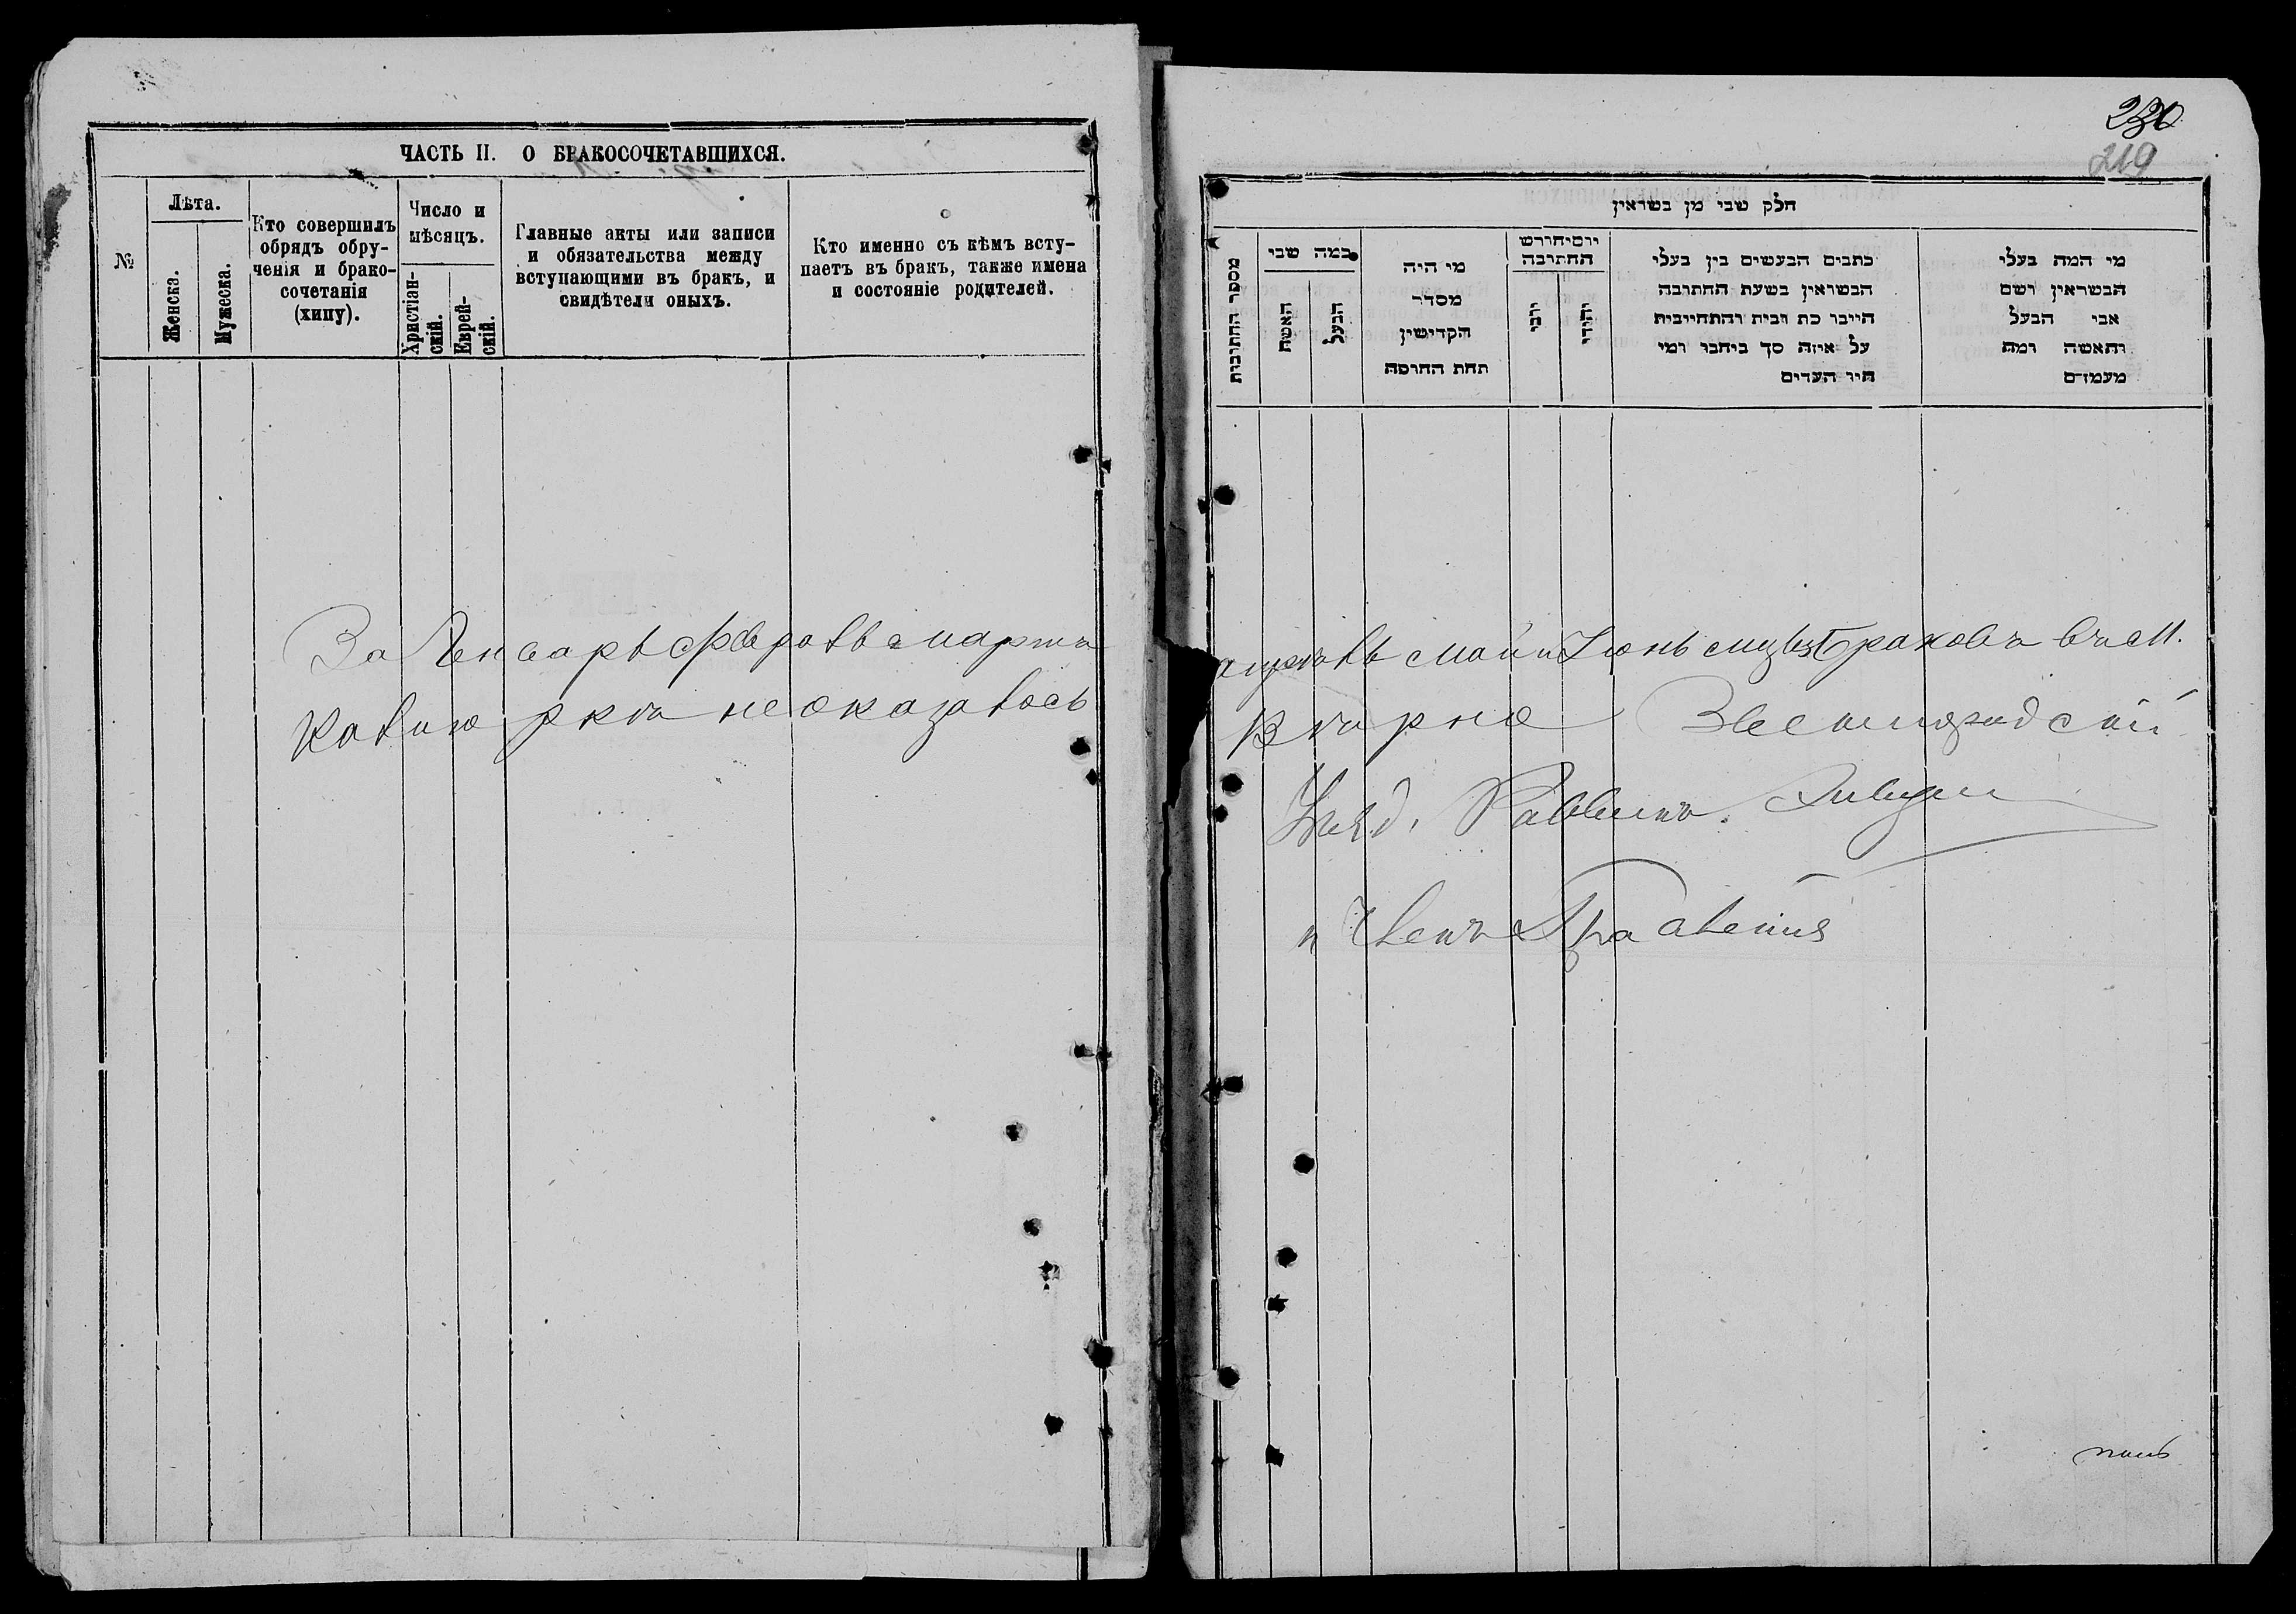 ЧАСТЬ II. О БРАКОСОЧЕТАВШИХСЯ.
№
Лѣта.
Женска.
Мужеска.
Кто совершилъ
обрядъ обру-
ченія и брако-
сочетанія
(хипу).
Число и
мѣсяцъ.
Христіан-
скій.
Еврей-
скій.
Главные акты или записи
и обязательства между
вступающими въ бракъ, и
свидѣтели оныхъ.
Кто именно съ кѣмъ всту-
паетъ въ бракъ, также имена
и состояніе родителей.
За Январь Февраль Мартъ
не оказалось
230
219
חלק שני מן נשואין
מספר החתונות
כמה שני
האשה
הבעל
מי היה
מסדר
הקדושין
תחת החופה
יום וחודש
החתונה
נוצרי
יהודי
כתבים הנעשים בין בעלי
הנשואין בשעת החתונה
היינו כת ובית והתחייבות
על איזה סך ביחבו ומי
היו העדים
מי המה בעלי
הנשואין ושם
אבי הבעל
והאשה ומה
מעמדם
апрѣль май и Іюнь мцы браковъ въ М.
Вѣрно Звенигородскій
Раввинъ
и Членъ Правленія